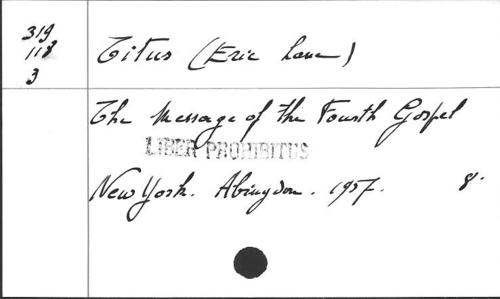 319
118
3
Titus (Eric Lane)
The Message of the Fourth Gospel
LIBER PROHIBITUS
New York. Abingdon. 1957. 8.